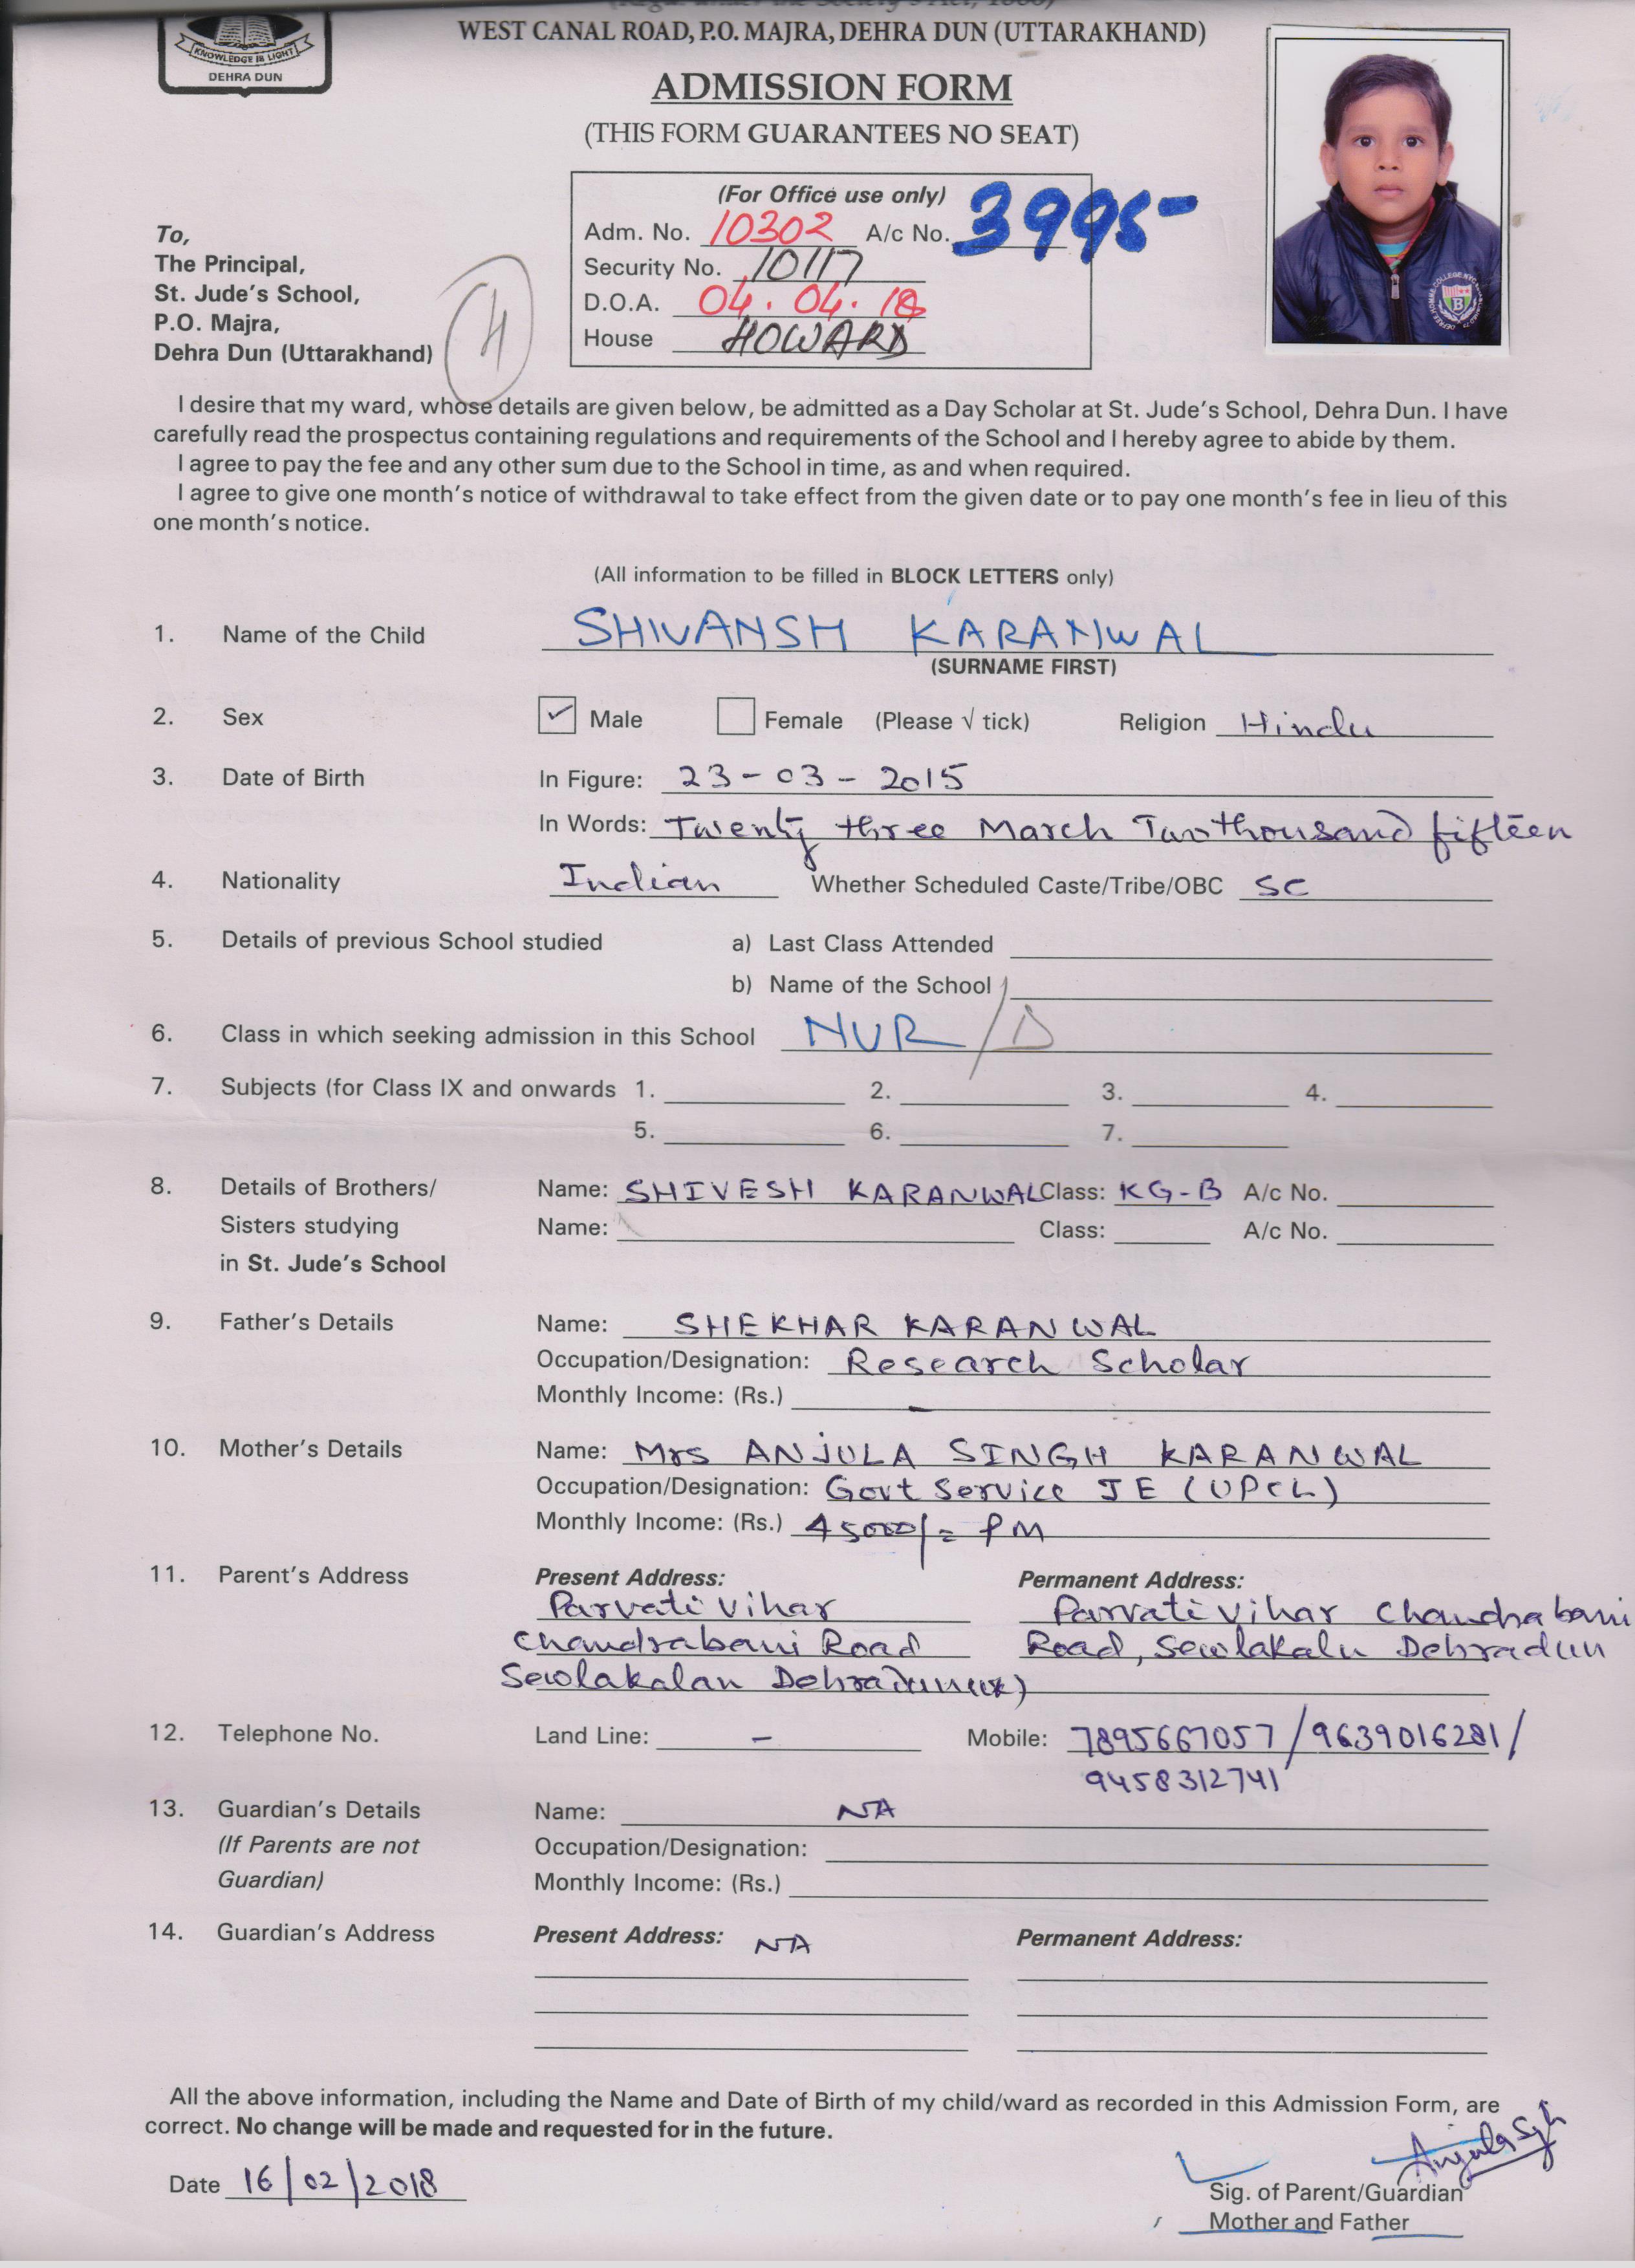 WEST CANAL ROAD, P.O. MAJRA, DEHRA DUN (UTTARAKHAND)
KNOWLEDGE IS LIGHT
DEHRA DUN
ADMISSION FORM
(THIS FORM GUARANTEES NO SEAT)
(For Office use only)
Adm. No. 10302 A/c No. 3995-
Security No. 10117
D.O.A. 04. 04. 18
House HOWARD
To,
The Principal,
St. Jude's School,
P.O. Majra,
Dehra Dun (Uttarakhand)
I desire that my ward, whose details are given below, be admitted as a Day Scholar at St. Jude's School, Dehra Dun. I have
carefully read the prospectus containing regulations and requirements of the School and I hereby agree to abide by them.
I agree to pay the fee and any other sum due to the School in time, as and when required.
I agree to give one month's notice of withdrawal to take effect from the given date or to pay one month's fee in lieu of this
one month's notice.
(All information to be filled in BLOCK LETTERS only)
1. Name of the Child SHIVANSH KARANWAL
(SURNAME FIRST)
2. Sex ✓ Male Female (Please √ tick) Religion Hindu
3. Date of Birth In Figure: 23-03-2015
In Words: Twenty three March Two thousand fifteen
4. Nationality Indian Whether Scheduled Caste/Tribe/OBC SC
5. Details of previous School studied a) Last Class Attended
b) Name of the School
6. Class in which seeking admission in this School NUR/D
7. Subjects (for Class IX and onwards 1. 2. 3. 4.
5. 6. 7.
8. Details of Brothers/ Name: SHIVESH KARANWAL Class: KG-B A/c No.
Sisters studying Name: Class: A/c No.
in St. Jude's School
9. Father's Details Name: SHEKHAR KARANWAL
Occupation/Designation: Research Scholar
Monthly Income: (Rs.) -
10. Mother's Details Name: Mrs ANJULA SINGH KARANWAL
Occupation/Designation: Govt Service JE (UPCL)
Monthly Income: (Rs.) 45000/= PM
11. Parent's Address Present Address: Permanent Address:
Parvati Vihar Parvati Vihar Chandrabani
Chandrabani Road Road, Sewlakaln Dehradun
Sewlakalan Dehradun(uk)
12. Telephone No. Land Line: - Mobile: 7895667057/9639016281/
9458312741
13. Guardian's Details Name: NA
(If Parents are not Occupation/Designation:
Guardian) Monthly Income: (Rs.)
14. Guardian's Address Present Address: NA Permanent Address:
All the above information, including the Name and Date of Birth of my child/ward as recorded in this Admission Form, are
correct. No change will be made and requested for in the future.
Anjula Sgh
Date 16/02/2018
Sig. of Parent/Guardian
Mother and Father